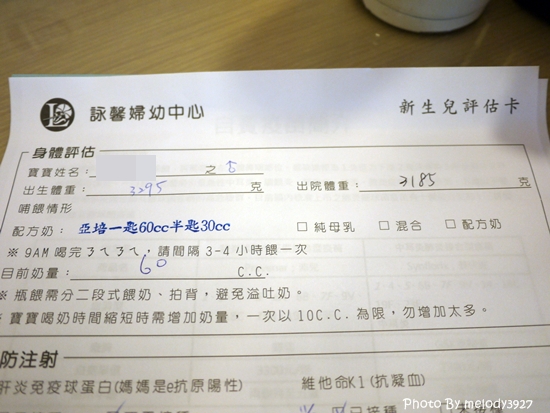 詠馨婦幼中心
新生兒評估卡
身體評估
寶寶姓名： 之
出生體重： 3295 克 出院體重： 3185 克
哺餵情形
配方奶： 亞培一匙60cc半匙30cc □ 純母乳 □ 混合 □ 配方奶
※ 9AM 喝完ㄋㄟㄋㄟ，請間隔 3-4 小時餵一次
目前奶量： 60 C.C.
※ 瓶餵需分二段式餵奶、拍背，避免溢吐奶。
※ 寶寶喝奶時間縮短時需增加奶量，一次以 10C.C. 為限，勿增加太多。
防注射
肝炎免疫球蛋白(媽媽是e抗原陽性) 維他命K1(抗凝血)
Photo By melody3927